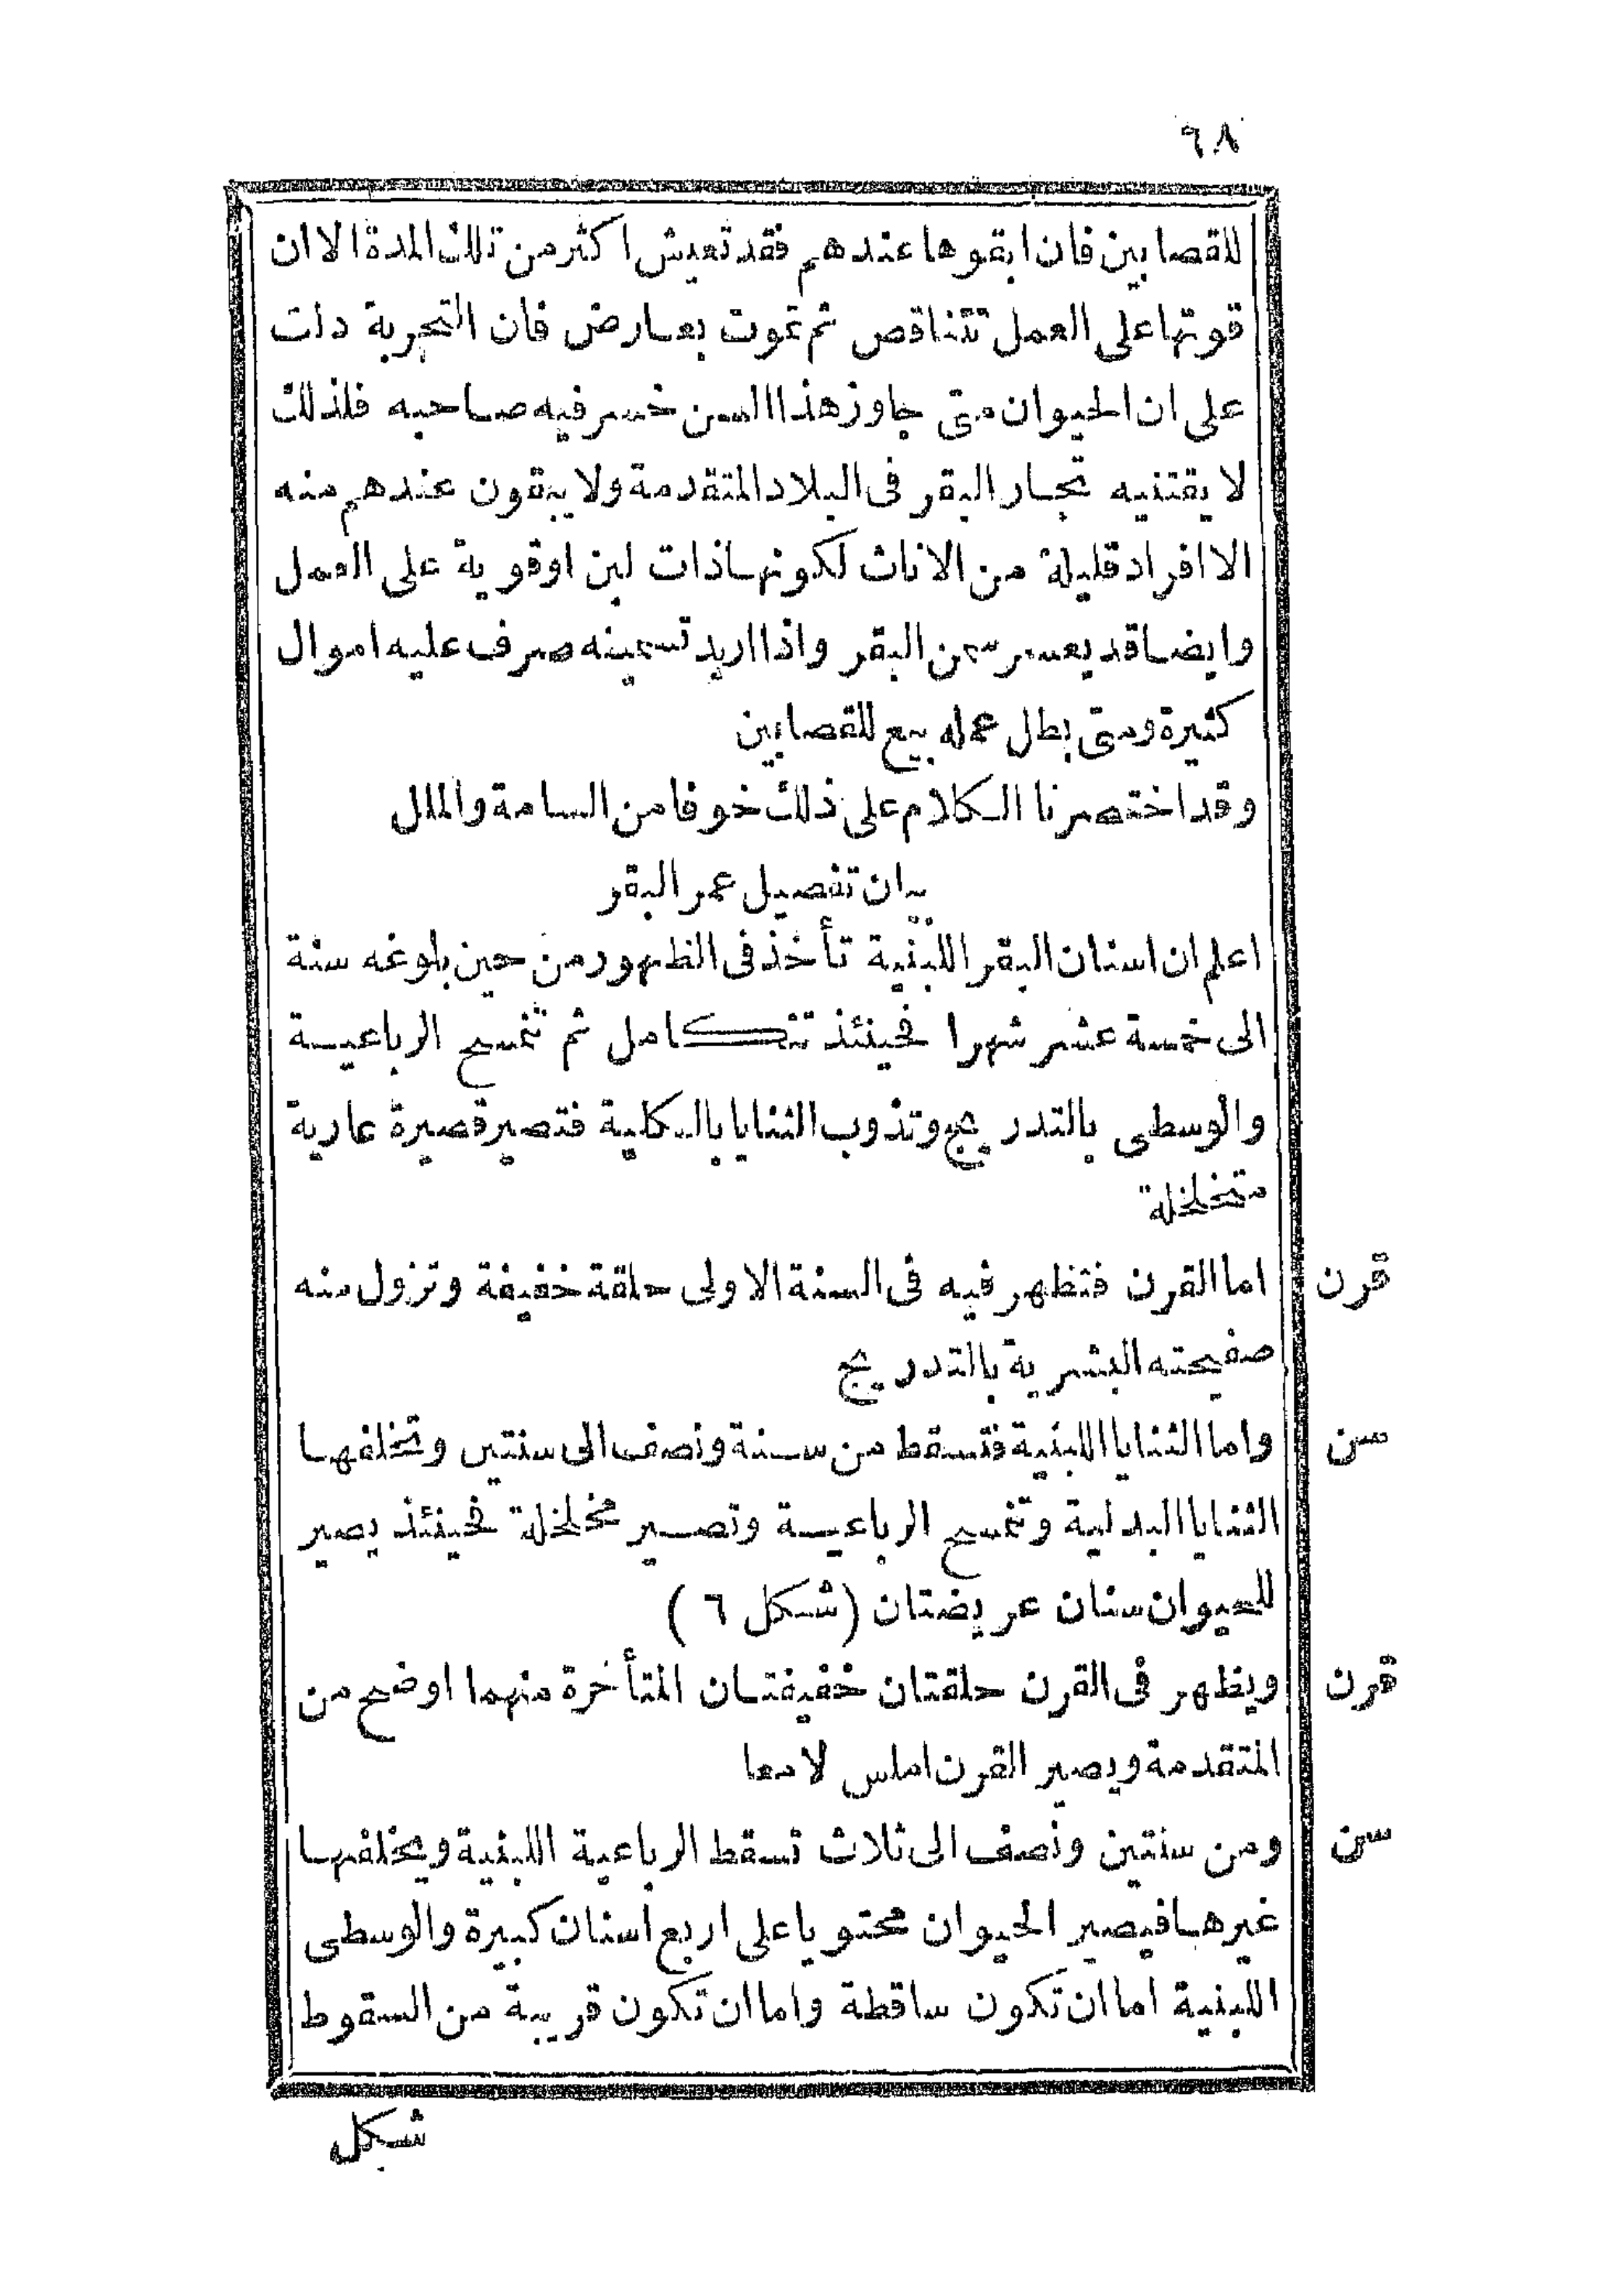 ٩٨
للقصابين فان ابقوها عندهم فقد تعيش اكثر من تلك المدة الا ان
قوتها على العمل تتناقص ثم تموت بعارض فان التجربة دلت
على ان الحيوان متى جاوز هذا السن خسر فيه صاحبه فلذلك
لا يقتنيه تجار البقر فى البلاد المتقدمة ولا يبقون عندهم منه
الا افراد قليلة من الاناث لكونها ذات لبن او قوية على العمل
وايضا قد يعسر سمن البقر واذا اريد تسمينه صرف عليه اموال
كثيرة ومتى بطل عمله بيع للقصابين
وقد اختصرنا الكلام على ذلك خوفا من السامة والملل
بيان تفصيل عمر البقر
اعلم ان اسنان البقر اللبنية تأخذ فى الظهور من حين بلوغه سنة
الى خمسة عشر شهرا فحينئذ تتكامل ثم تنمسح الرباعية
والوسطى بالتدريج وتذوب الثنايا بالكلية فتصير قصيرة عارية
متخلخلة
قرن اما القرن فتظهر فيه فى السنة الاولى حلقة خفيفة وتزول منه
صفيحته البشرية بالتدريج
سن واما الثنايا اللبنية فتسقط من سنة ونصف الى سنتين وتخلفها
الثنايا البدلية وتنمسح الرباعية وتصير مخلخلة فحينئذ يصير
للحيوان سنان عريضتان (شكل ٦)
قرن ويظهر فى القرن حلقتان خفيفتان المتأخرة منهما اوضح من
المتقدمة ويصير القرن املس لامعا
سن ومن سنتين ونصف الى ثلاث تسقط الرباعية اللبنية ويخلفها
غيرها فيصير الحيوان محتويا على اربع اسنان كبيرة والوسطى
اللبنية اما ان تكون ساقطة واما ان تكون قريبة من السقوط
شكل